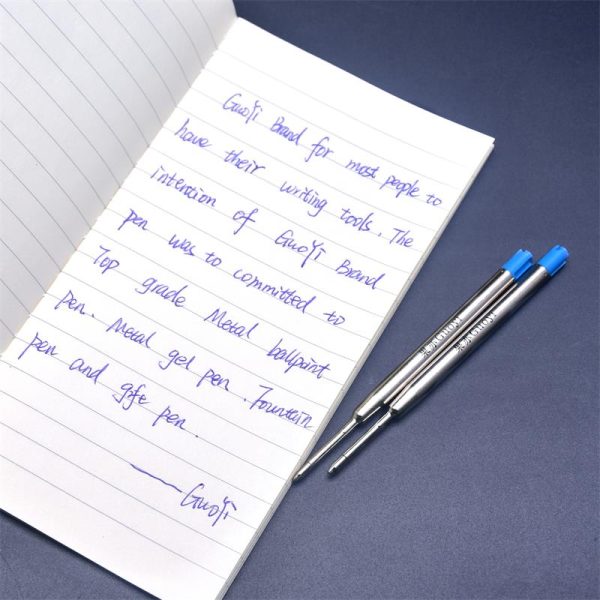 GuoYi Brand for most people to
have their writing tools. The
intention of GuoYi Brand
pen was to committed to
Top grade Metal ballpoint
pen. Metal gel pen. Fountain
pen and gift pen.
—— GuoYi